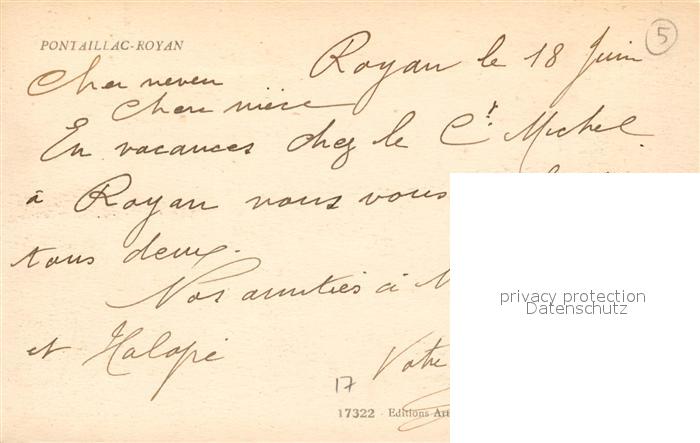 PONTAILLAC-ROYAN
5
Royan le 18 Juin
Cher neveu
Chere nièce
En vacances chez le Ct. Michel
à Royan nous vous
tous deux.
Nos amitiés à
et
Votre
17
17322 - Editions Art
privacy protection
Datenschutz